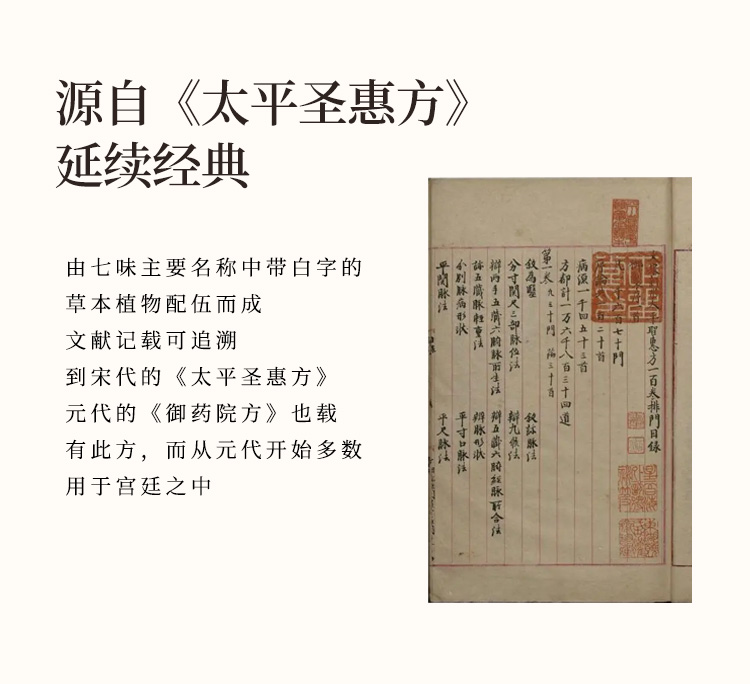 源自《太平圣惠方》
延续经典
由七味主要名称中带白字的
草本植物配伍而成
文献记载可追溯
到宋代的《太平圣惠方》
元代的《御药院方》也载
有此方，而从元代开始多数
用于宫廷之中
聖惠方一百卷排門目錄
七十門
二十首
病源一千四五十三首
方都計一万六千八百三十四道
第一卷 九三十門 論三十首
叙為醫 叙診脉法
分寸關尺三部脉位法 辯九候法
辯兩手五臟六腑脉所生法 辯五臟六腑經脉所合法
診五臟脉輕重法 辯脉形状
分別脉病形状 平寸口脉法
平關脉法 平尺脉法